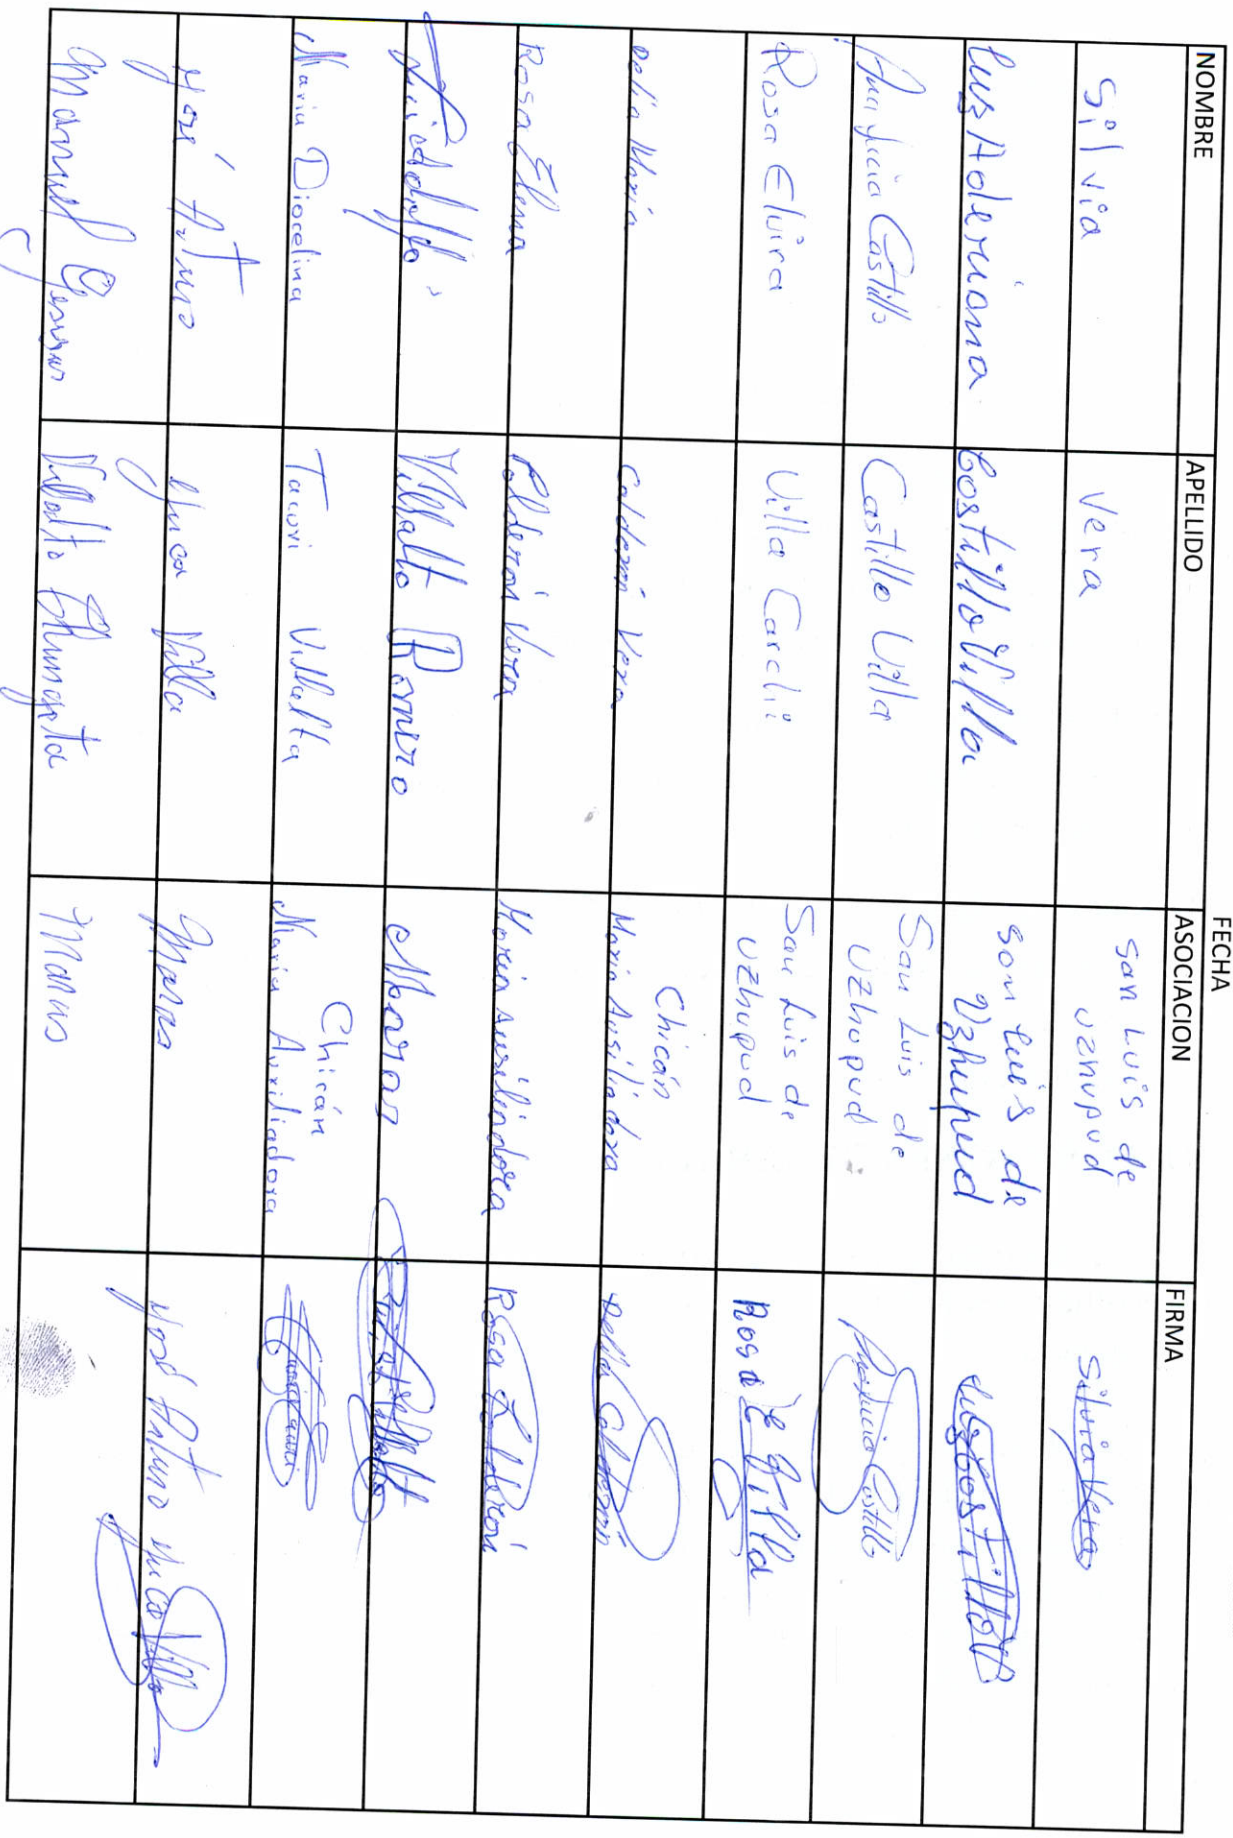 FECHA
NOMBRE APELLIDO ASOCIACION FIRMA
Silvia Vera San Luis de Uzhupud Silvia Vera
Luz Aderiana Costillo Villa San Luis de Uzhupud Luz Costillo V
Ana Lucia Castillo Castillo Villa San Luis de Uzhupud Ana Lucia Castillo
Rosa Elvira Villa Carchi San Luis de Uzhupud Rosa E Villa
Delia María Calderón Vera Chicán María Auxiliadora Delia Calderón
Rosa Elena Calderón Vera María Auxiliadora Rosa Calderón
Luis Adolfo Villalta Romero Maras
Maria Diocelina Tacuri Villalta Chicán Maria Auxiliadora
José Arturo Yuca Villa Maras José Arturo Yuca Villa
Manuel Jesus Villalta Maras